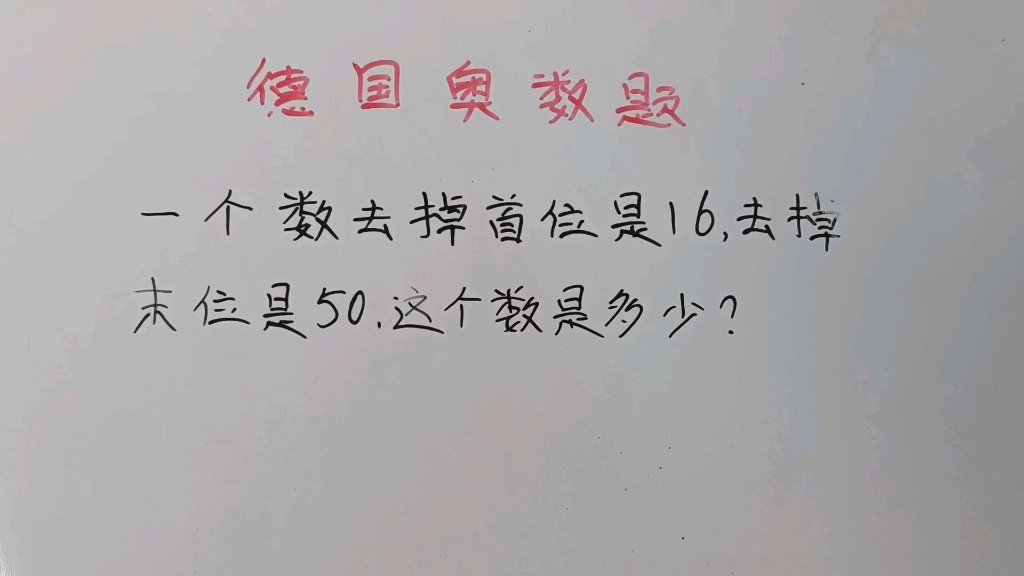 德国奥数题
一个数去掉首位是16,去掉
末位是50.这个数是多少?